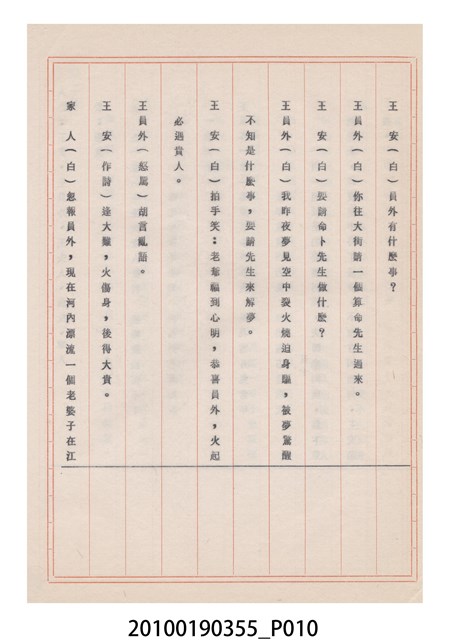 王　安（白）員外有什麽事？
王員外（白）你往大街請一個算命先生過來。
王　安（白）要請命卜先生做什麽？
王員外（白）我昨夜夢見空中裂火燒迫身軀，被夢驚醒
不知是什麽事，要請先生來解夢。
王　安（白）拍手笑：老爺福到心明，恭喜員外，火起
必遇貴人。
王員外（怒罵）胡言亂語。
王　安（作詩）逢大難，火傷身，後得大貴。
家　人（白）忽報員外，現在河內漂流一個老婆子在江
20100190355_P010